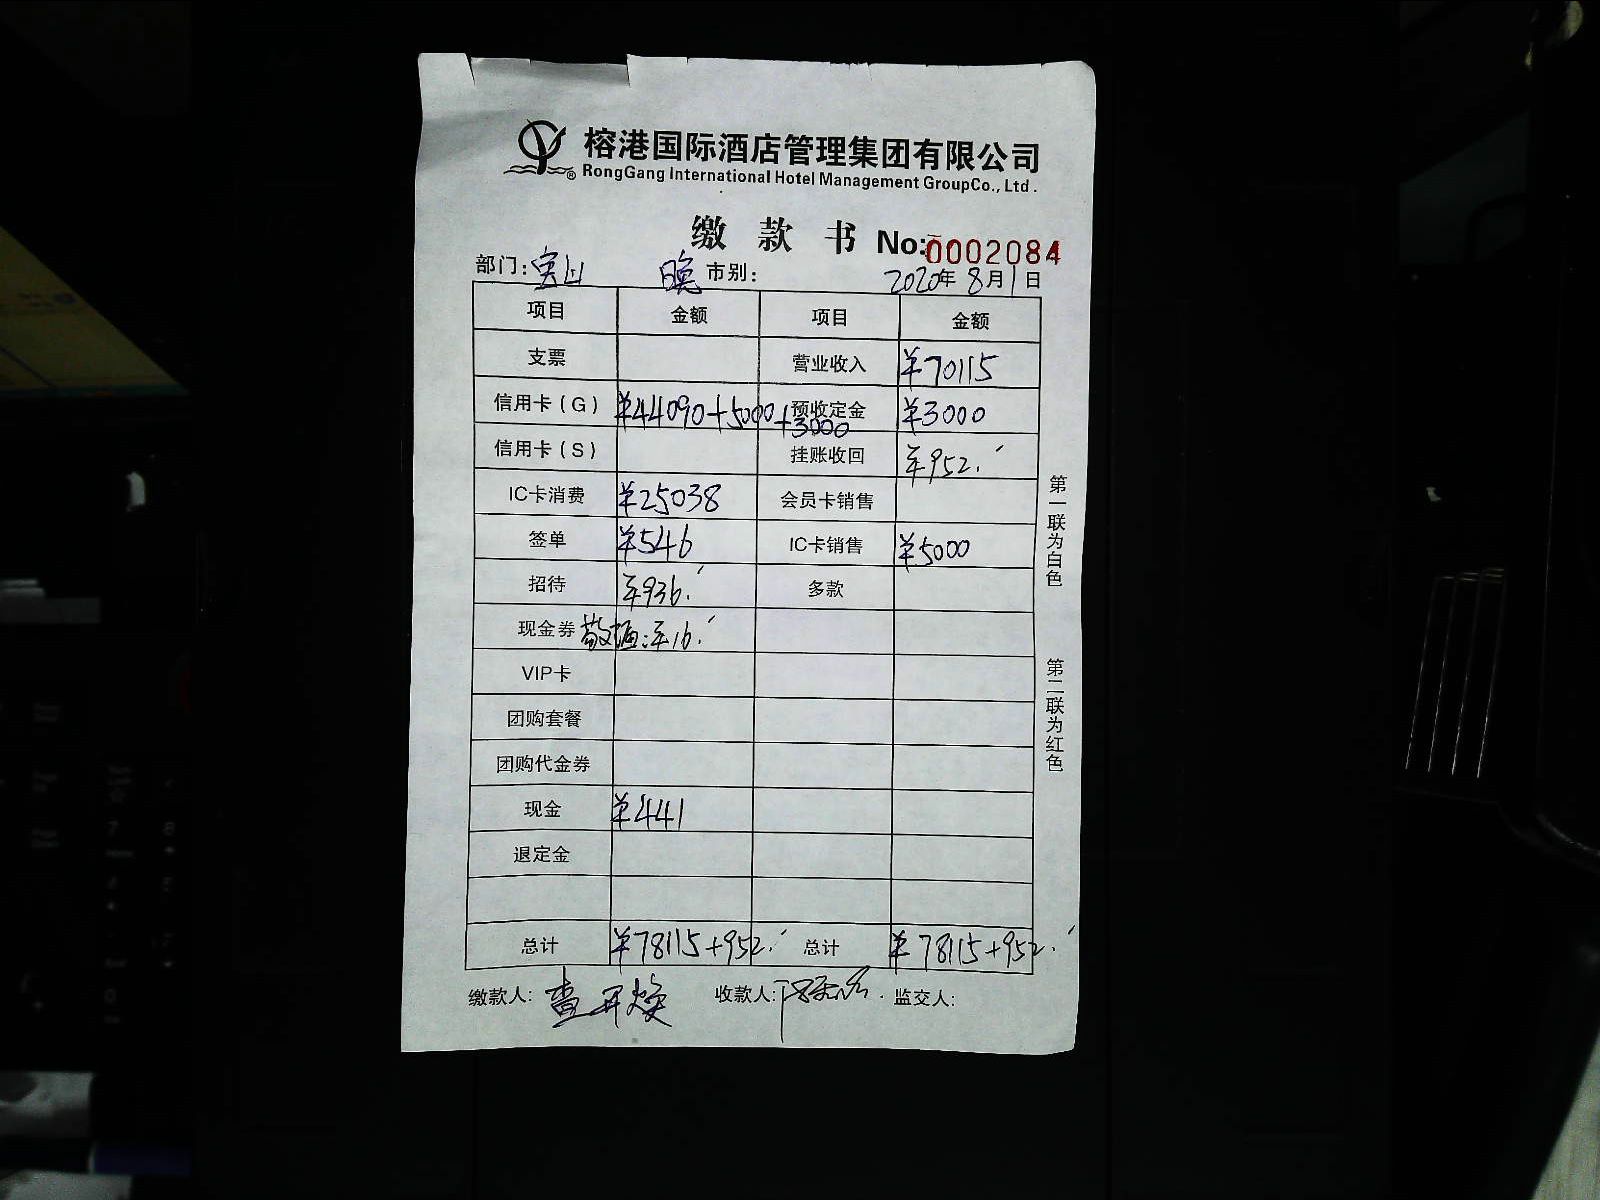 榕港国际酒店管理集团有限公司
RongGang International Hotel Management GroupCo., Ltd.
缴款书 No:0002084
部门:宝山 晚市别: 2020年8月1日
项目 金额 项目 金额
支票 营业收入 ¥70115
信用卡(G) ¥44090+5000+3000 预收定金 ¥3000
信用卡(S) 挂账收回 ¥952.
IC卡消费 ¥25038 会员卡销售
签单 ¥546 IC卡销售 ¥5000
招待 ¥936. 多款
现金券 ¥16.
VIP卡
团购套餐
团购代金券
现金 ¥441
退定金
总计 ¥78115+952. 总计 ¥78115+952.
缴款人: 收款人: 监交人:
第一联为白色
第二联为红色